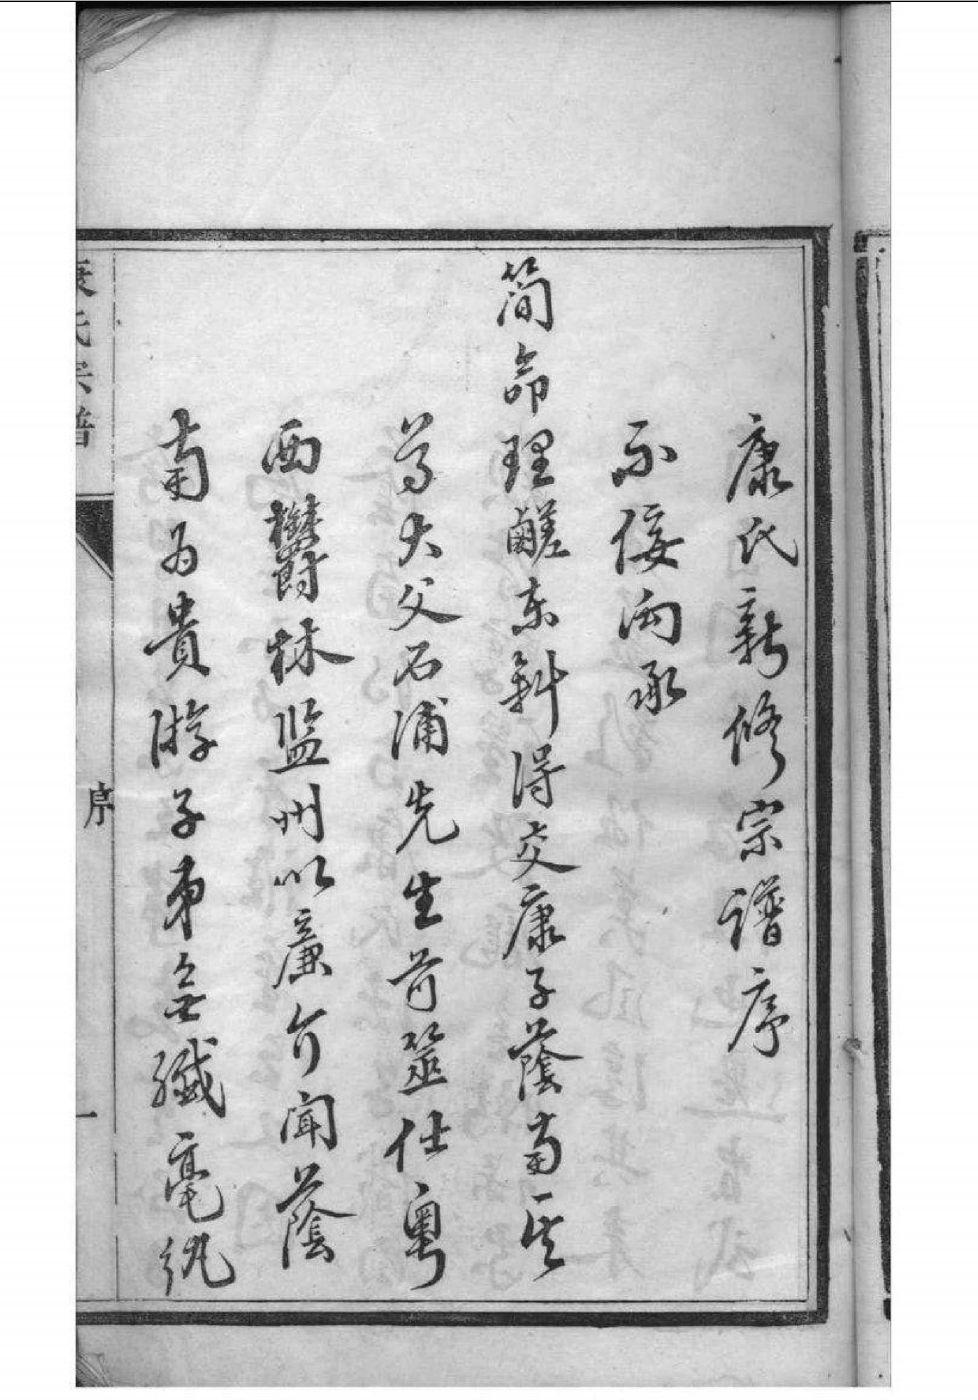 康氏新修宗譜序
不佞向承
簡命理鹺東斜得交康子蔭南其
尊大父石浦先生前筮仕粵
西欝林監州以廉介聞蔭
南為貴游子弟無纖毫紈
康氏宗譜
序
一